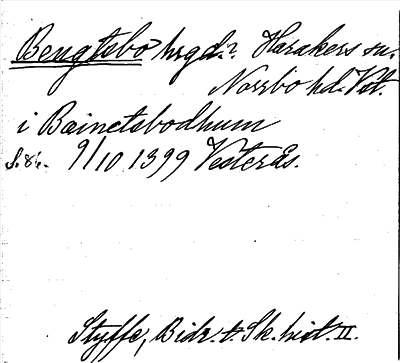 Bengtsbo hrgd.? Harakers sn.
Norrbo hd. Vst.
i Bainctsbodhum
S. 86. 9/10 1399 Vesterås.
Styffe, Bidr. t. Sk. hist. II.